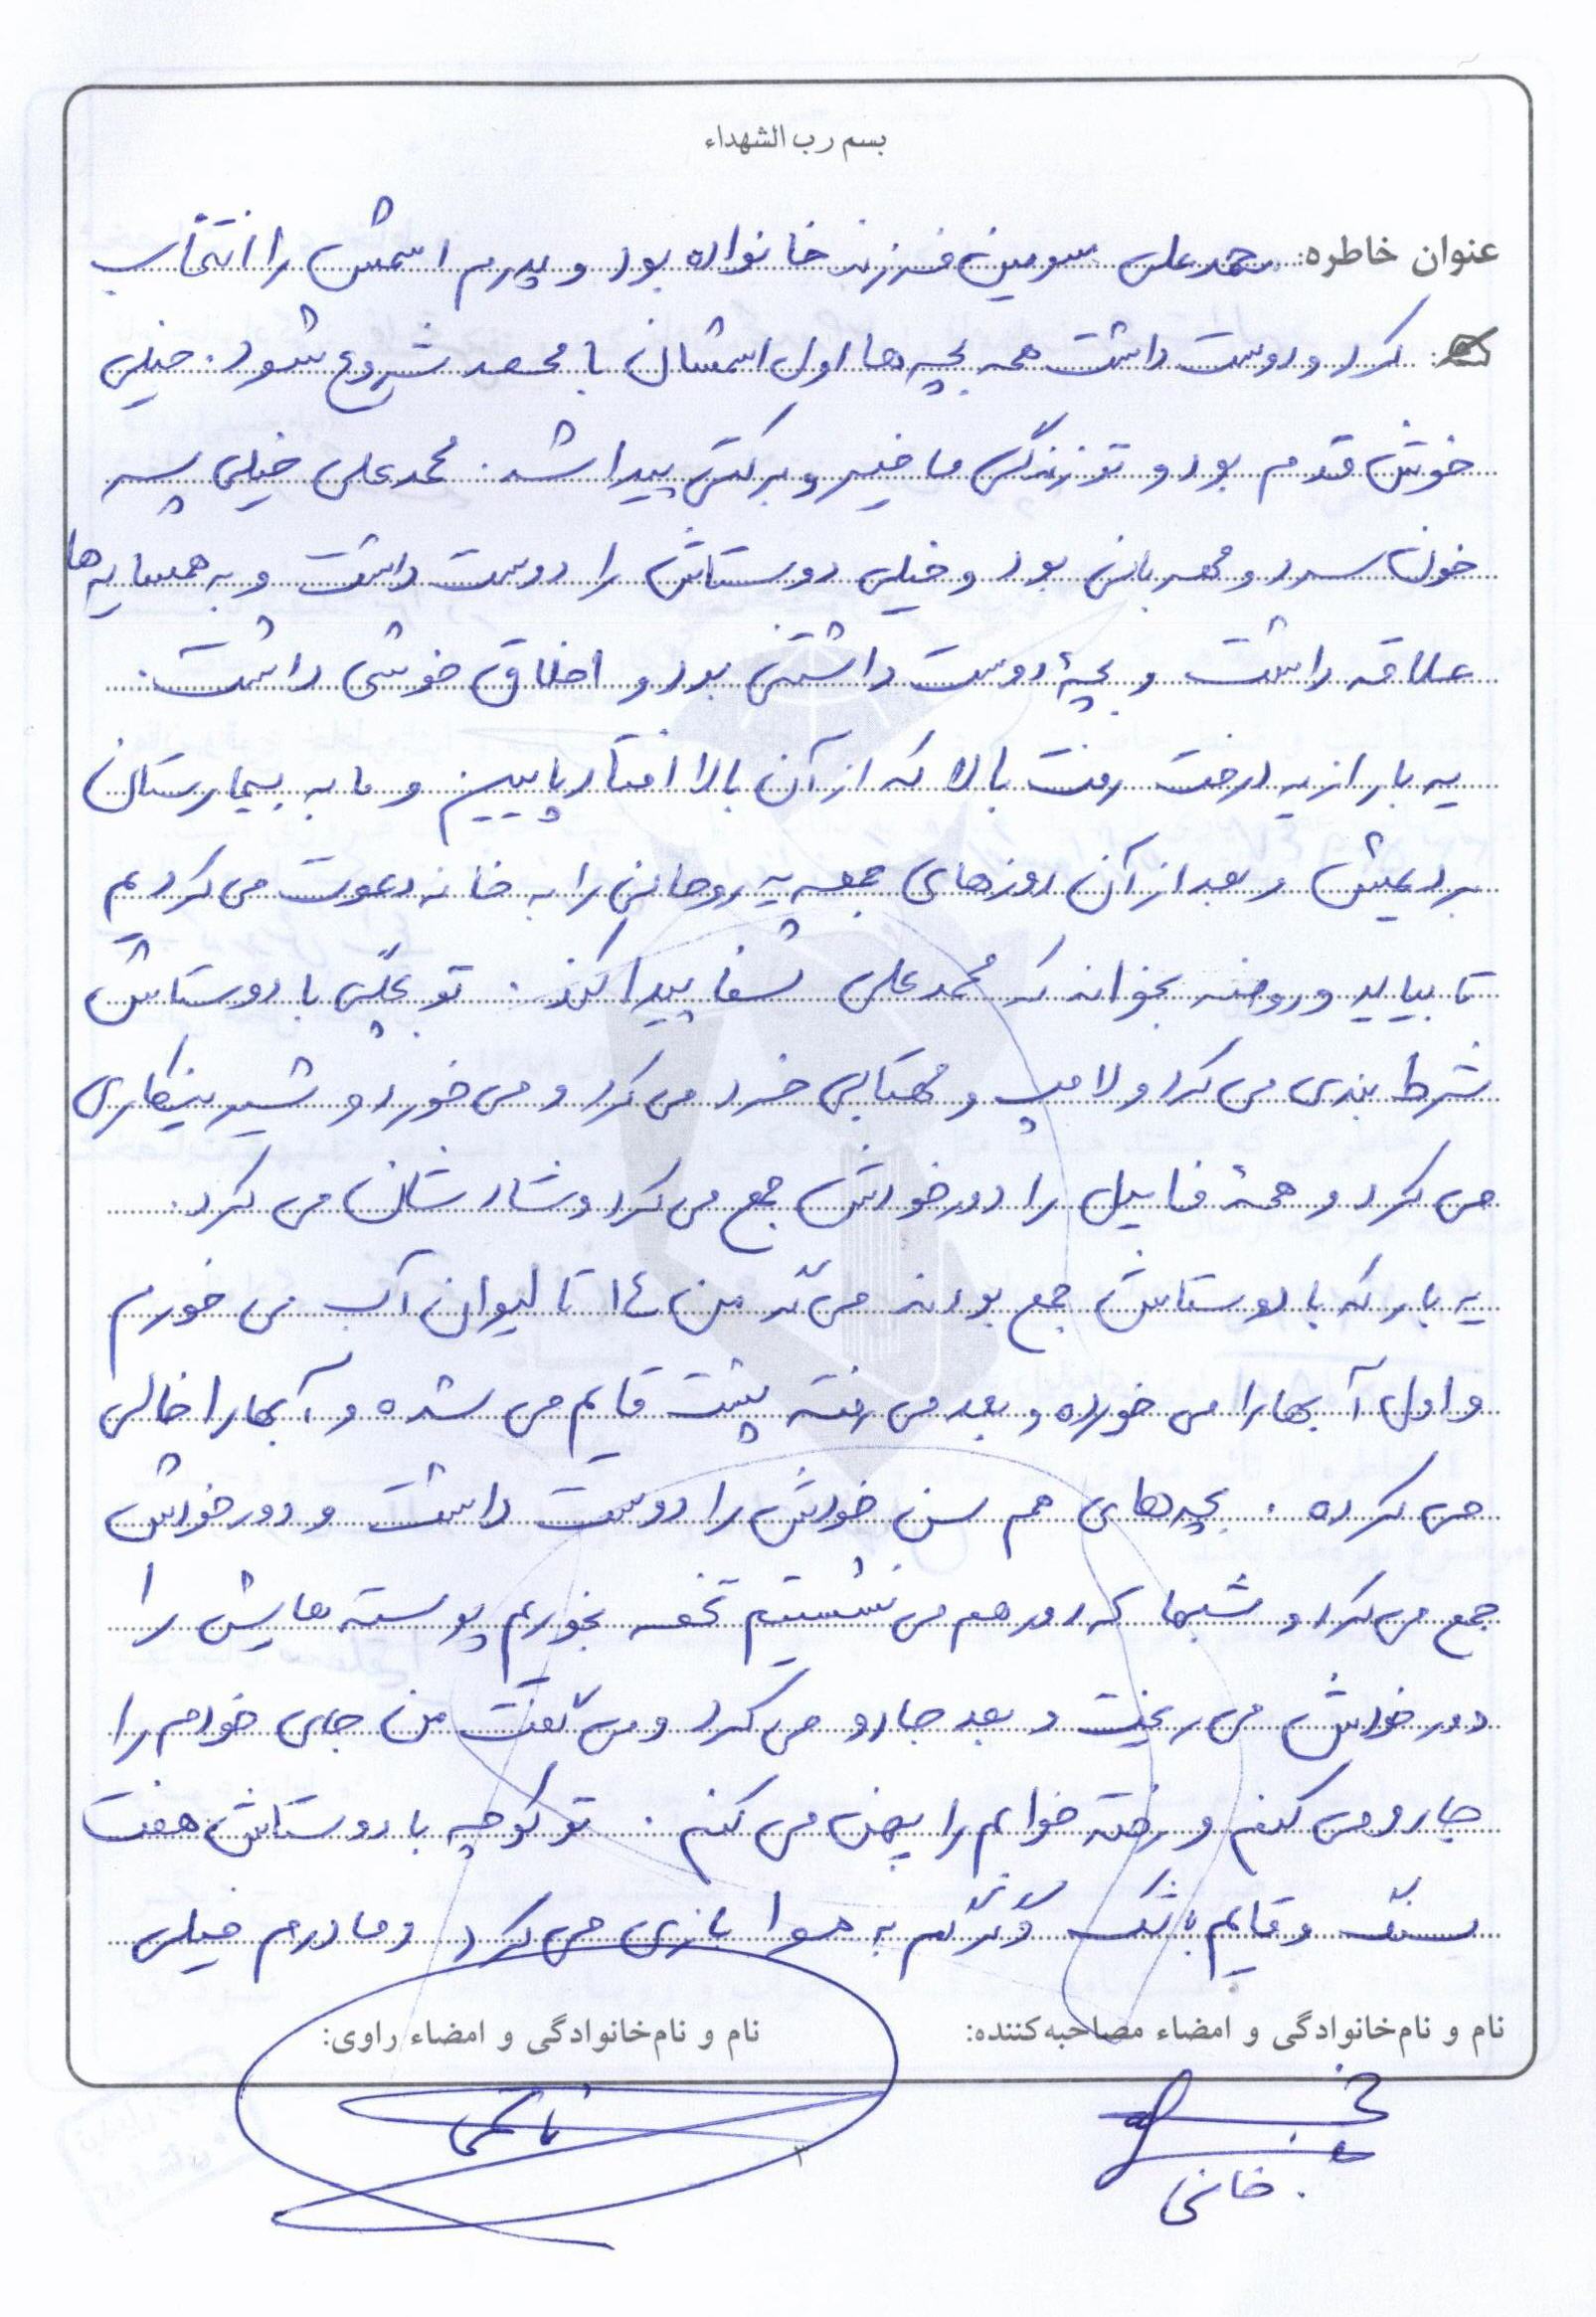 بسم رب الشهداء
عنوان خاطره: محمدعلی سومین فرزند خانواده بود و پدرم اسمش را انتخاب
کرد و دوست داشت همه بچه‌ها اول اسمشان با محمد شروع شود. خیلی
خوش قدم بود و تو زندگی ما خیر و برکتی پیدا شد. محمدعلی خیلی پسر
خون سرد و مهربانی بود و خیلی دوستاش را دوست داشت و به همسایه‌ها
علاقه داشت و بچهٔ دوست داشتنی بود و اخلاق خوشی داشت.
یه بار از یه درخت رفت بالا که از آن بالا افتاد پایین و ما به بیمارستان
بردیمش و بعد از آن روزهای جمعه یه روحانی را به خانه دعوت می کردیم
تا بیاید و روضه بخواند که محمدعلی شفا پیدا کند. تو بچگی با دوستاش
شرط بندی می کرد و لامپ و مهتابی خرد می کرد و می خورد و شیرینکاری
می کرد و همهٔ فامیل را دور خودش جمع می کرد و شادشان می کرد.
یه بار که با دوستاش جمع بودند می گه من ١٤ تا لیوان آب می خورم
و اول آبها را می خورده و بعد می رفته پشت قایم می شده و آبها را خالی
می کرده. بچه‌های هم سن خودش را دوست داشت و دور خودش
جمع می کرد و شبها که دور هم می نشستیم تخمه بخوریم پوسته هایش را
دور خودش می ریخت و بعد جارو می کرد و می گفت من جای خودم را
جارو می کنم و رخته خوابم را پهن می کنم. تو کوچه با دوستاش هفت
سنگ و قایم باشک و گرگم به هوا بازی می کرد و مادرم خیلی
نام و نام‌خانوادگی و امضاء مصاحبه‌کننده:
نام و نام‌خانوادگی و امضاء راوی:
خانی
۲